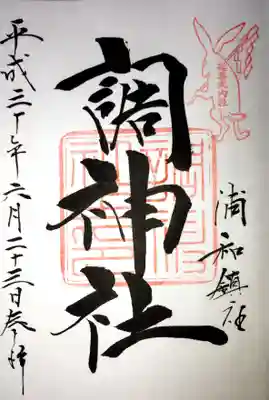 浦和鎮社
調神社
平成三十年六月二十三日参拝